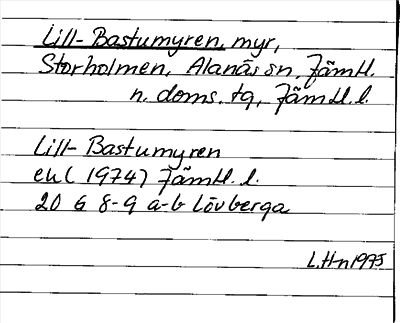 Lill-Bastumyren, myr,
Storholmen, Alanäs sn, Jämtl.
n. doms. tg, Jämtl. l.
Lill-Bastumyren
ek (1974) Jämtl. l.
20 G 8-9 a-b Lövberga
L.H-n 1975